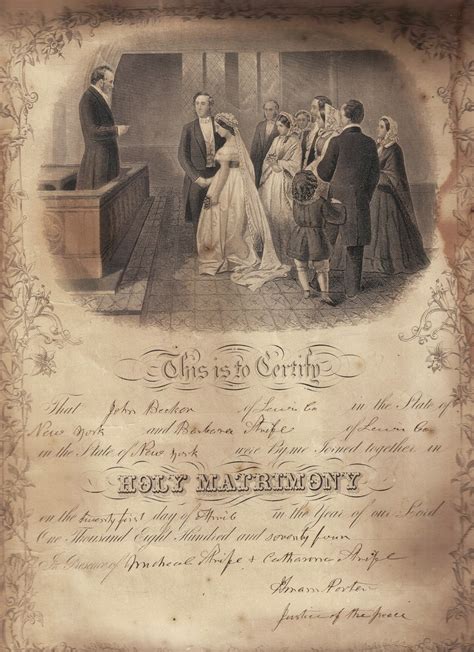 This is to Certify
That John Becker of Lewis Co in the State of
New York and Barbara Stripe of Lewis Co
in the State of New York were by me Joined together in
HOLY MATRIMONY
on the twenty first day of in the Year of our Lord
One Thousand Eight Hundred and seventy four
In Presence of Micheal Stripe & Catharone Stripe
Porter
Justice of the peace